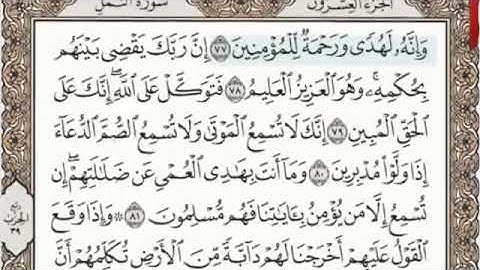 الجزء العشرون سورة النمل
وَإِنَّهُۥ لَهُدًى وَرَحْمَةٌ لِّلْمُؤْمِنِينَ ٧٧ إِنَّ رَبَّكَ يَقْضِى بَيْنَهُم
بِحُكْمِهِۦ ۚ وَهُوَ ٱلْعَزِيزُ ٱلْعَلِيمُ ٧٨ فَتَوَكَّلْ عَلَى ٱللَّهِ ۖ إِنَّكَ عَلَى
ٱلْحَقِّ ٱلْمُبِينِ ٧٩ إِنَّكَ لَا تُسْمِعُ ٱلْمَوْتَىٰ وَلَا تُسْمِعُ ٱلصُّمَّ ٱلدُّعَآءَ
إِذَا وَلَّوْا۟ مُدْبِرِينَ ٨٠ وَمَآ أَنتَ بِهَٰدِى ٱلْعُمْىِ عَن ضَلَٰلَتِهِمْ ۖ إِن
تُسْمِعُ إِلَّا مَن يُؤْمِنُ بِـَٔايَٰتِنَا فَهُم مُّسْلِمُونَ ٨١ ۞ وَإِذَا وَقَعَ
ٱلْقَوْلُ عَلَيْهِمْ أَخْرَجْنَا لَهُمْ دَآبَّةً مِّنَ ٱلْأَرْضِ تُكَلِّمُهُمْ أَنَّ
ربع
الحزب
٣٩